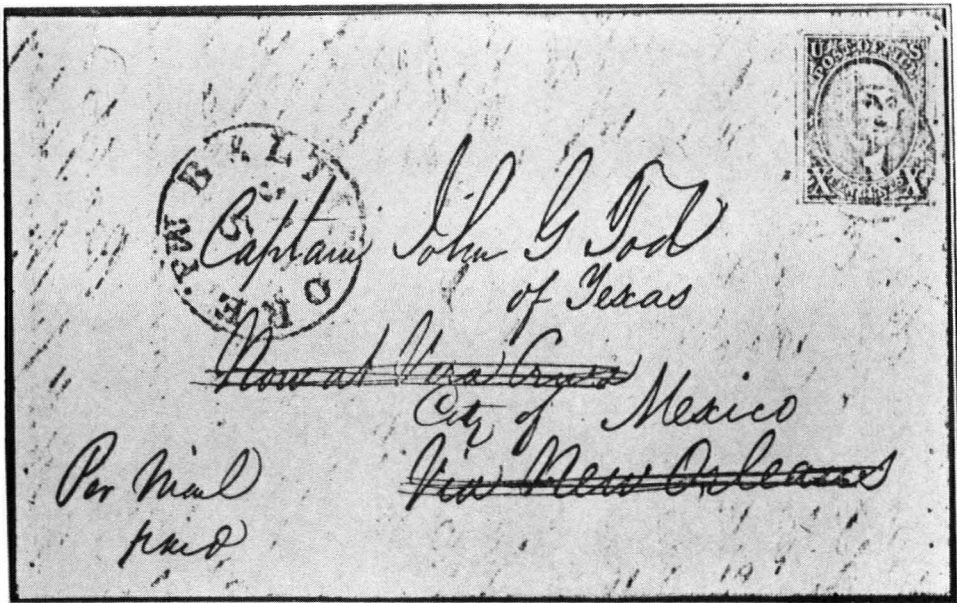 U S
POST OFFICE
X X
BALTIMORE
5
Captain John G Tod
of Texas
Now at Vera Cruz
City of Mexico
Via New Orleans
Per Mail
paid